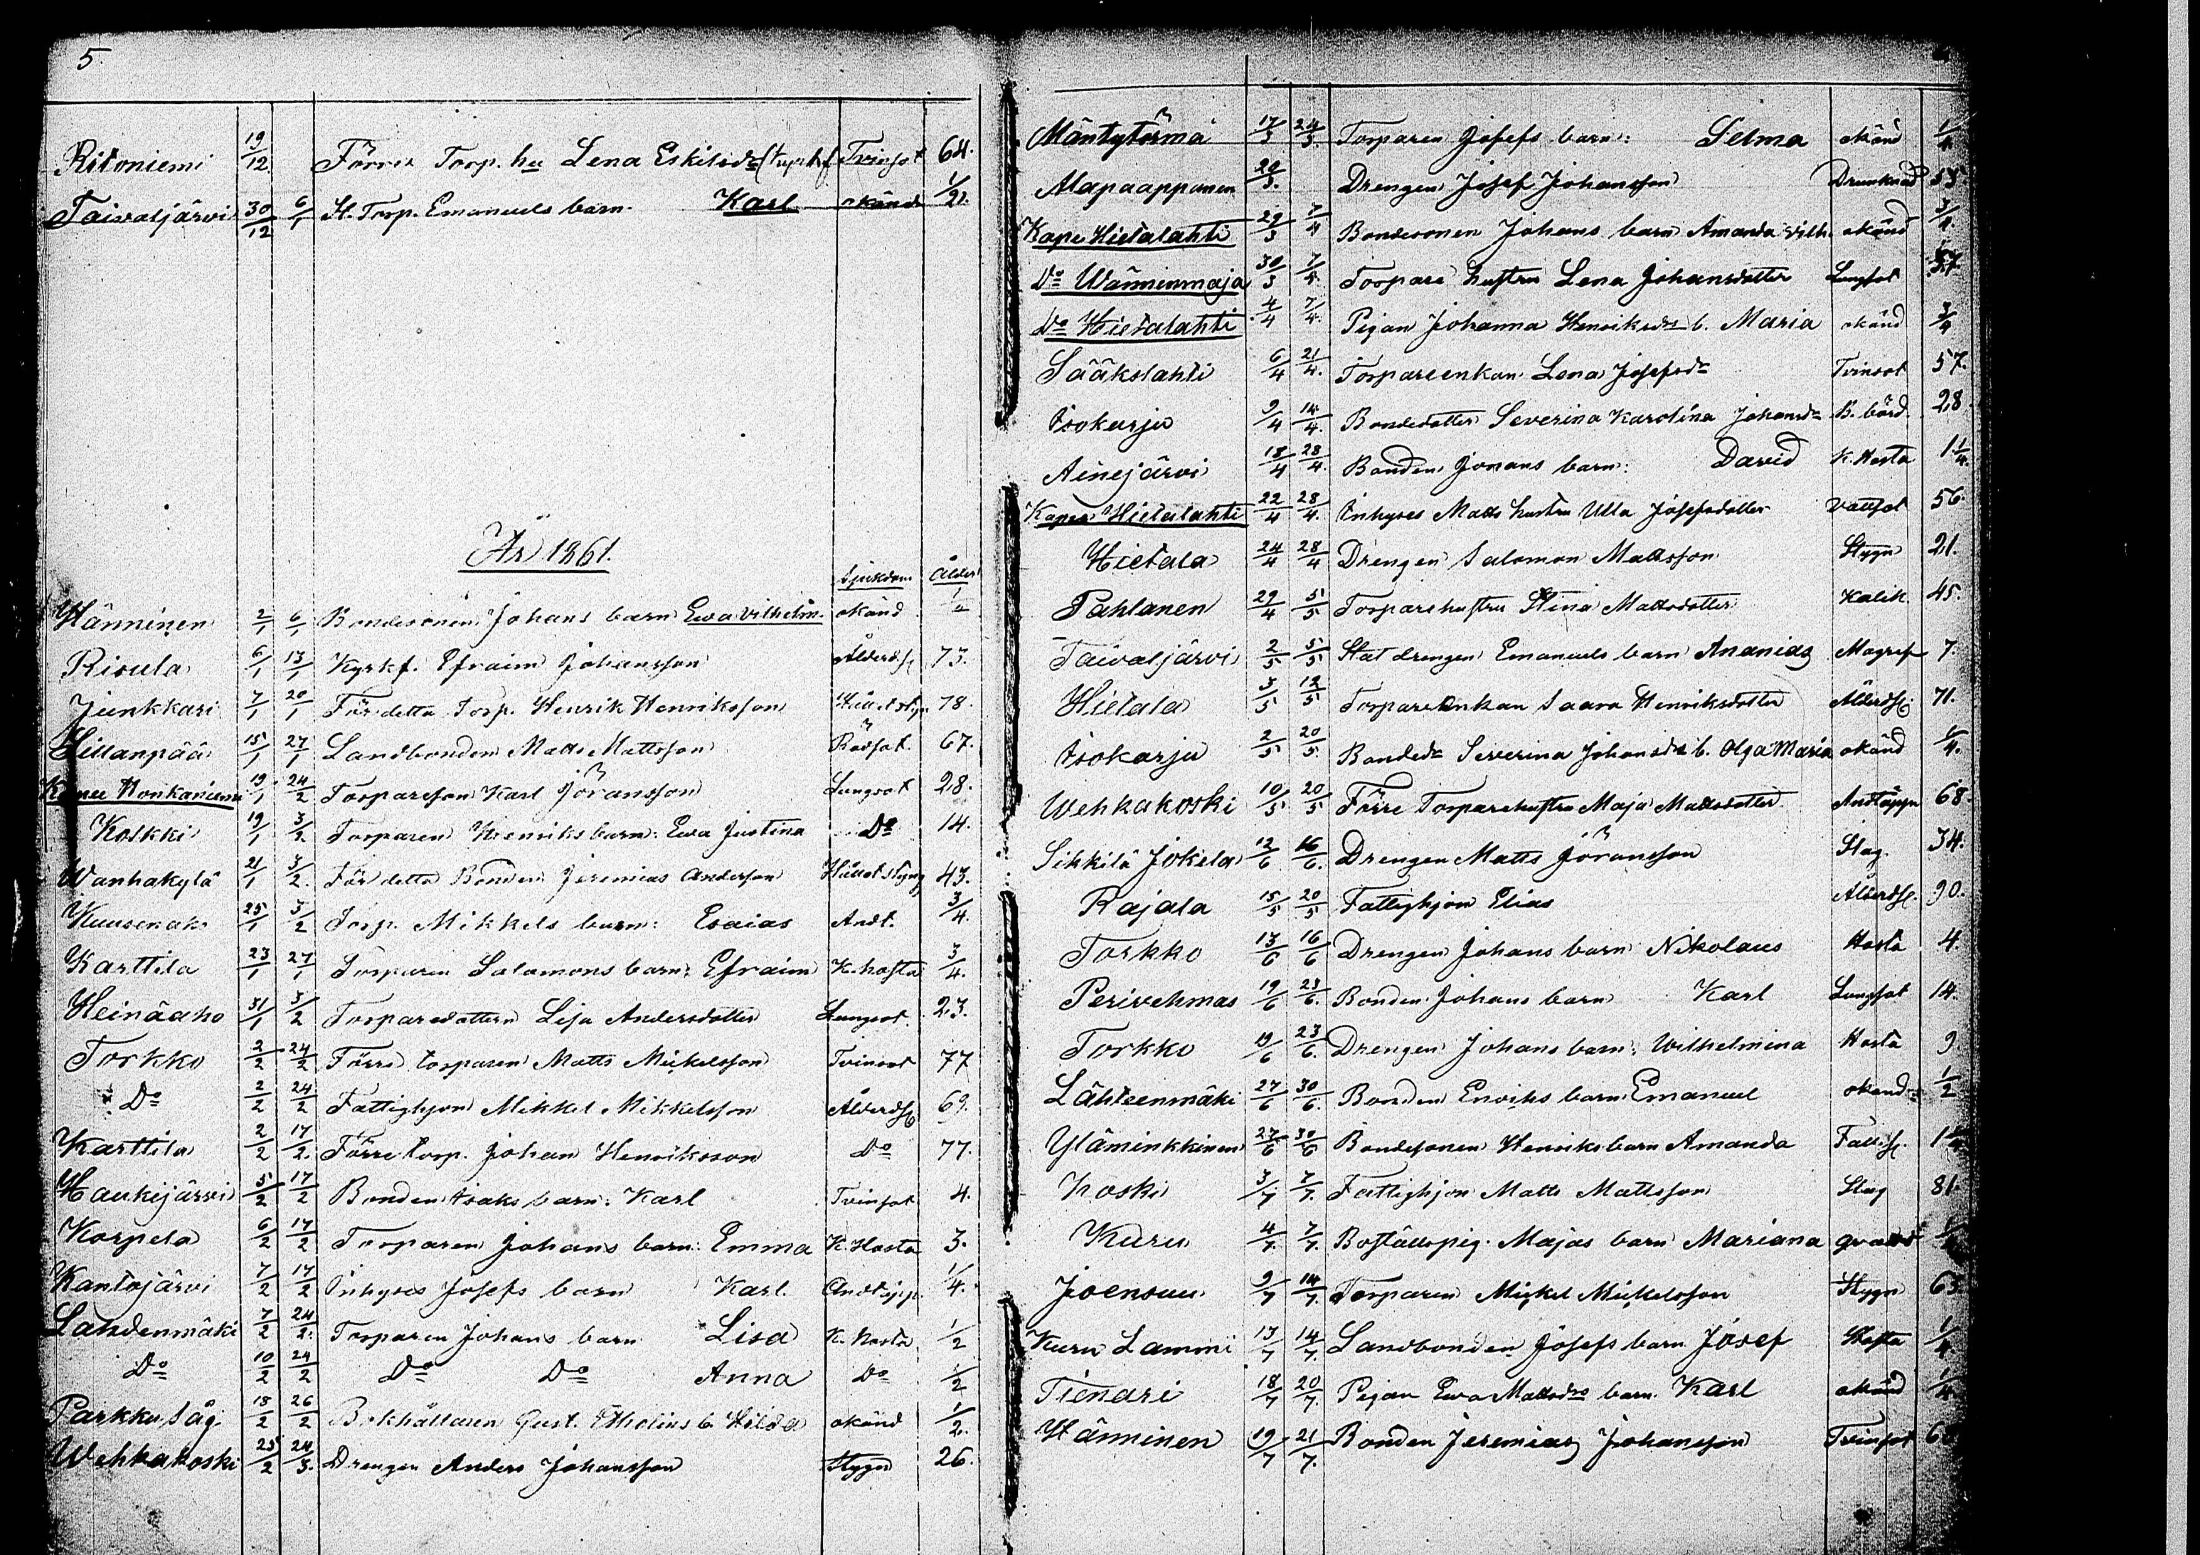 5.
Ritoniemi 19/12 Förra Torp. hu Lena Eskilsd. Tvinsot 64.
Taivaljärvi 30/12 6/1 St. Torp. Emanuels barn Karl okänd 1/2.
År 1861.
Sjukdom Ålder
Hänninen 2/1 6/1 Bondesonen Johans barn Ewa Vilhelm. okänd 1/2
Risula 6/1 13/1 Kyrkf. Efraim Johansson Ålderdsl 73.
Junkkari 7/1 20/1 För detta Torp. Henrik Henriksson 78.
15/1 27/1 Landbonden Matts Mattsson Rödsot. 67.
Honkaniemi 19/1 24/2 Torparson Karl Jöransson Lungsot 28.
Koskki 19/1 3/2 Torparen Henriks barn: Ewa Justina Do 14.
Wanhakylä 21/1 3/2. För detta Bonden Jeremias Anderson Håll o styng 43.
25/1 3/2 Torp. Mikkels barn: Esaias Andt. 3/4.
Karttila 23/1 27/1 Torparen Salamons barn: Efraim K. hosta 3/4.
Heinäaho 31/1 3/2 Torparedottern Lisa Andersdotter Lungsot. 23.
Torkko 2/2 24/2 Förre torparen Matts Mickelsson Tvinsot 77
Do 2/2 24/2 Fattighjon Mikkel Mikkelsson Ålderdsl 69.
Karttila 2/2 17/2. Förre torp. Johan Henriksson Do 77.
Haukijärvi 5/2 17/2 Bonden Isaks barn: Karl Tvinsot 4.
Korpela 6/2 17/2 Torparen Johans barn: Emma K. Hosta 3.
Kantojärvi 7/2 17/2 Inhyses Josefs barn Karl. Andtäpp. 1/4.
Lahdenmäki 7/2 24/2. Torparen Johans barn Lisa K. hosta 1/2
Do 10/2 24/2 Do Do Anna Do 1/2
Parkku såg 18/2 26/2 Bokhållaren Gust. Etholins b. Hilda okänd 1/2.
Wehkakoski 25/2 24/3. Drengen Anders Johansson Stygn 26.
Mäntytörmä 17/3 24/3. Torparen Josefs barn: Selma okänd
Alapaappanen 20/3. Drengen Josef Johansson Drunknad 55
Kape Hietalahti 29/3 7/4 Bondesonen Johans barn Amanda Vilh. okänd 3/4.
Do Wänninmaja 30/3 7/4. Torpare hustru Lena Johansdotter Lungsot
Do Hietalahti 4/4 7/4. Pigan Johanna Henriksdr b. Maria okänd 3/4
Sääkslahti 6/4 21/4. Torpareenkan Lena Josefsdr Tvinsot 57.
Isokarju 9/4 14/4. Bondedotter Severina Karolina Johansdr B. börd. 28.
Ainejärvi 18/4 28/4. Bonden Jonans barn: David K. Hosta 1 1/4.
Hietalahti 22/4 28/4. Inhyses Matts hustru Ulla Josefsdotter Vattsot 56.
Hietala 24/4 28/4 Drengen Salomon Mattsson Stygn 21.
Pahlanen 29/4 5/5 Torparehustru Stina Mattsdotter Kolik 45.
Taivaljärvi 2/5 5/5 Stat drengen Emanuels barn Ananias Magref 7.
Hietala 3/5 12/5 Torpareenkan Saara Henriksdotter Ålderdsl. 71.
Isokarju 2/5 20/5. Bonded. Severina Johansdr b. Olga Maria okänd 1/4.
Wehkakoski 10/5 20/5 Förre Torparehustru Maja Mattsdotter Andtäppa 68.
Sikkilä Jokela 12/6 16/6. Drengen Matts Jöransson Slag. 34.
Rajala 15/5 20/5 Fattighjon Elias Ålderdsl. 90.
Torkko 13/6 16/6 Drengen Johans barn Nikolaus Hosta 4.
Perivehmas 19/6 23/6. Bonden Johans barn Karl Lungsot 14.
Torkko 19/6 23/6. Drengen Johans barn: Wilhelmina Hosta 9
Lähteenmäki 27/6 30/6. Bonden Enoks barn Emanuel okänd 1/2
Yläminkkinen 27/6 30/6 Bondesonen Henriks barn Amanda Fallsj.
Koski 3/7 7/7. Fattighjon Matts Mattsson Slag 81.
Kuru 4/7. 7/7. Boställspig. Majas barn Mariana
Joensuu 9/7 14/7. Torparen Mickel Mickelsson Stygn
Kuru Lammi 13/7 14/7. Landbonden Josefs barn Josef Hosta 1/4
Tienari 18/7 20/7. Pigan Ewa Mattsdr barn Karl okänd 1/4
Hänninen 19/7 21/7. Bonden Jeremias Johansson Tvinsot